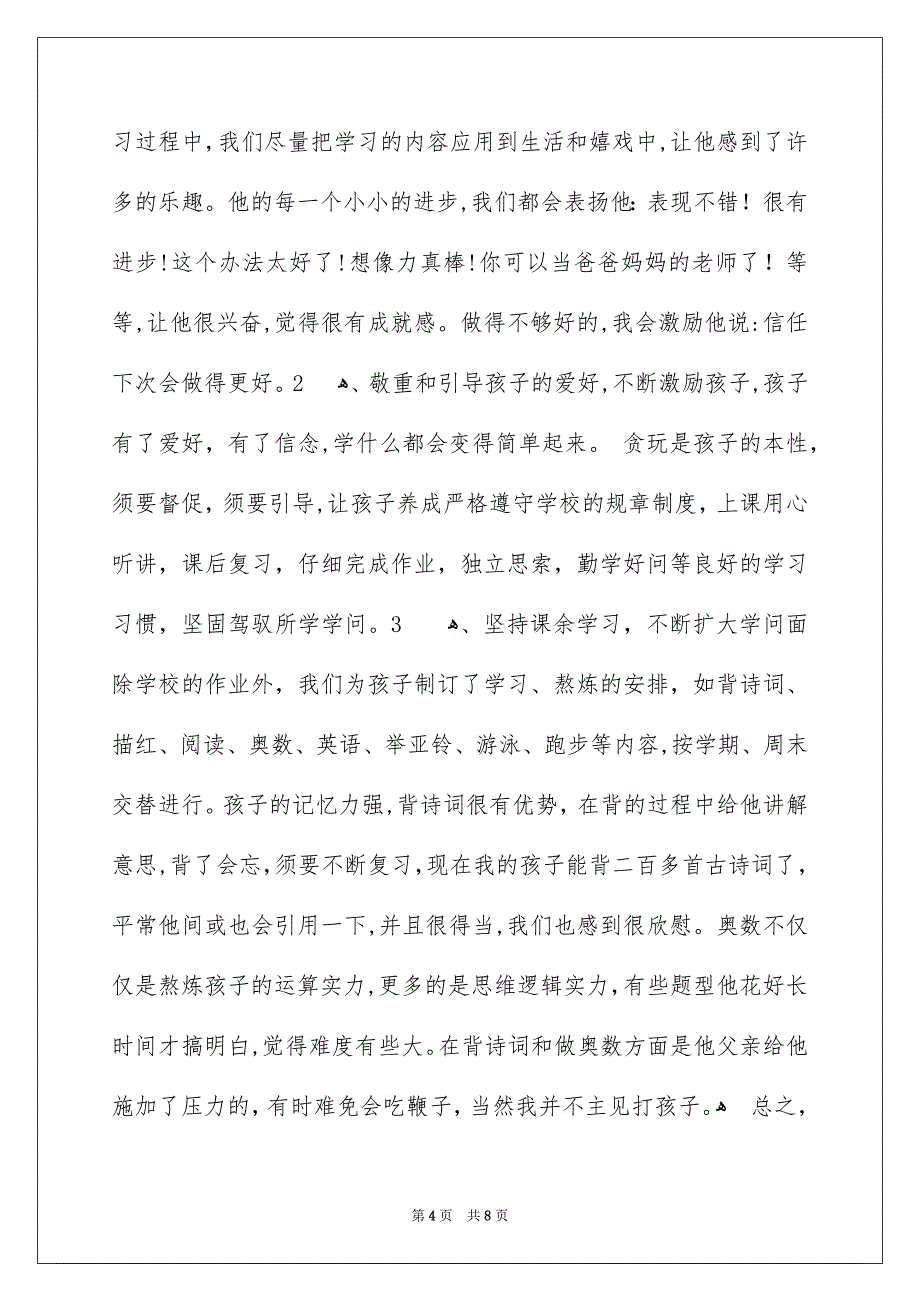 习过程中,我们尽量把学习的内容应用到生活和嬉戏中,让他感到了许
多的乐趣。他的每一个小小的进步,我们都会表扬他：表现不错！很有
进步!这个办法太好了!想像力真棒!你可以当爸爸妈妈的老师了！等
等,让他很兴奋,觉得很有成就感。做得不够好的,我会激励他说:信任
下次会做得更好。2 ﻫ、敬重和引导孩子的爱好,不断激励孩子,孩子
有了爱好，有了信念,学什么都会变得简单起来。 贪玩是孩子的本性,
须要督促，须要引导,让孩子养成严格遵守学校的规章制度，上课用心
听讲，课后复习，仔细完成作业，独立思索，勤学好问等良好的学习
习惯，坚固驾驭所学学问。3 ﻫ、坚持课余学习，不断扩大学问面
除学校的作业外，我们为孩子制订了学习、熬炼的安排，如背诗词、
描红、阅读、奥数、英语、举亚铃、游泳、跑步等内容,按学期、周末
交替进行。孩子的记忆力强,背诗词很有优势，在背的过程中给他讲解
意思,背了会忘,须要不断复习,现在我的孩子能背二百多首古诗词了，
平常他间或也会引用一下,并且很得当,我们也感到很欣慰。奥数不仅
仅是熬炼孩子的运算实力,更多的是思维逻辑实力，有些题型他花好长
时间才搞明白,觉得难度有些大。在背诗词和做奥数方面是他父亲给他
施加了压力的，有时难免会吃鞭子，当然我并不主见打孩子。ﻫ 总之，
第 4 页 共 8 页